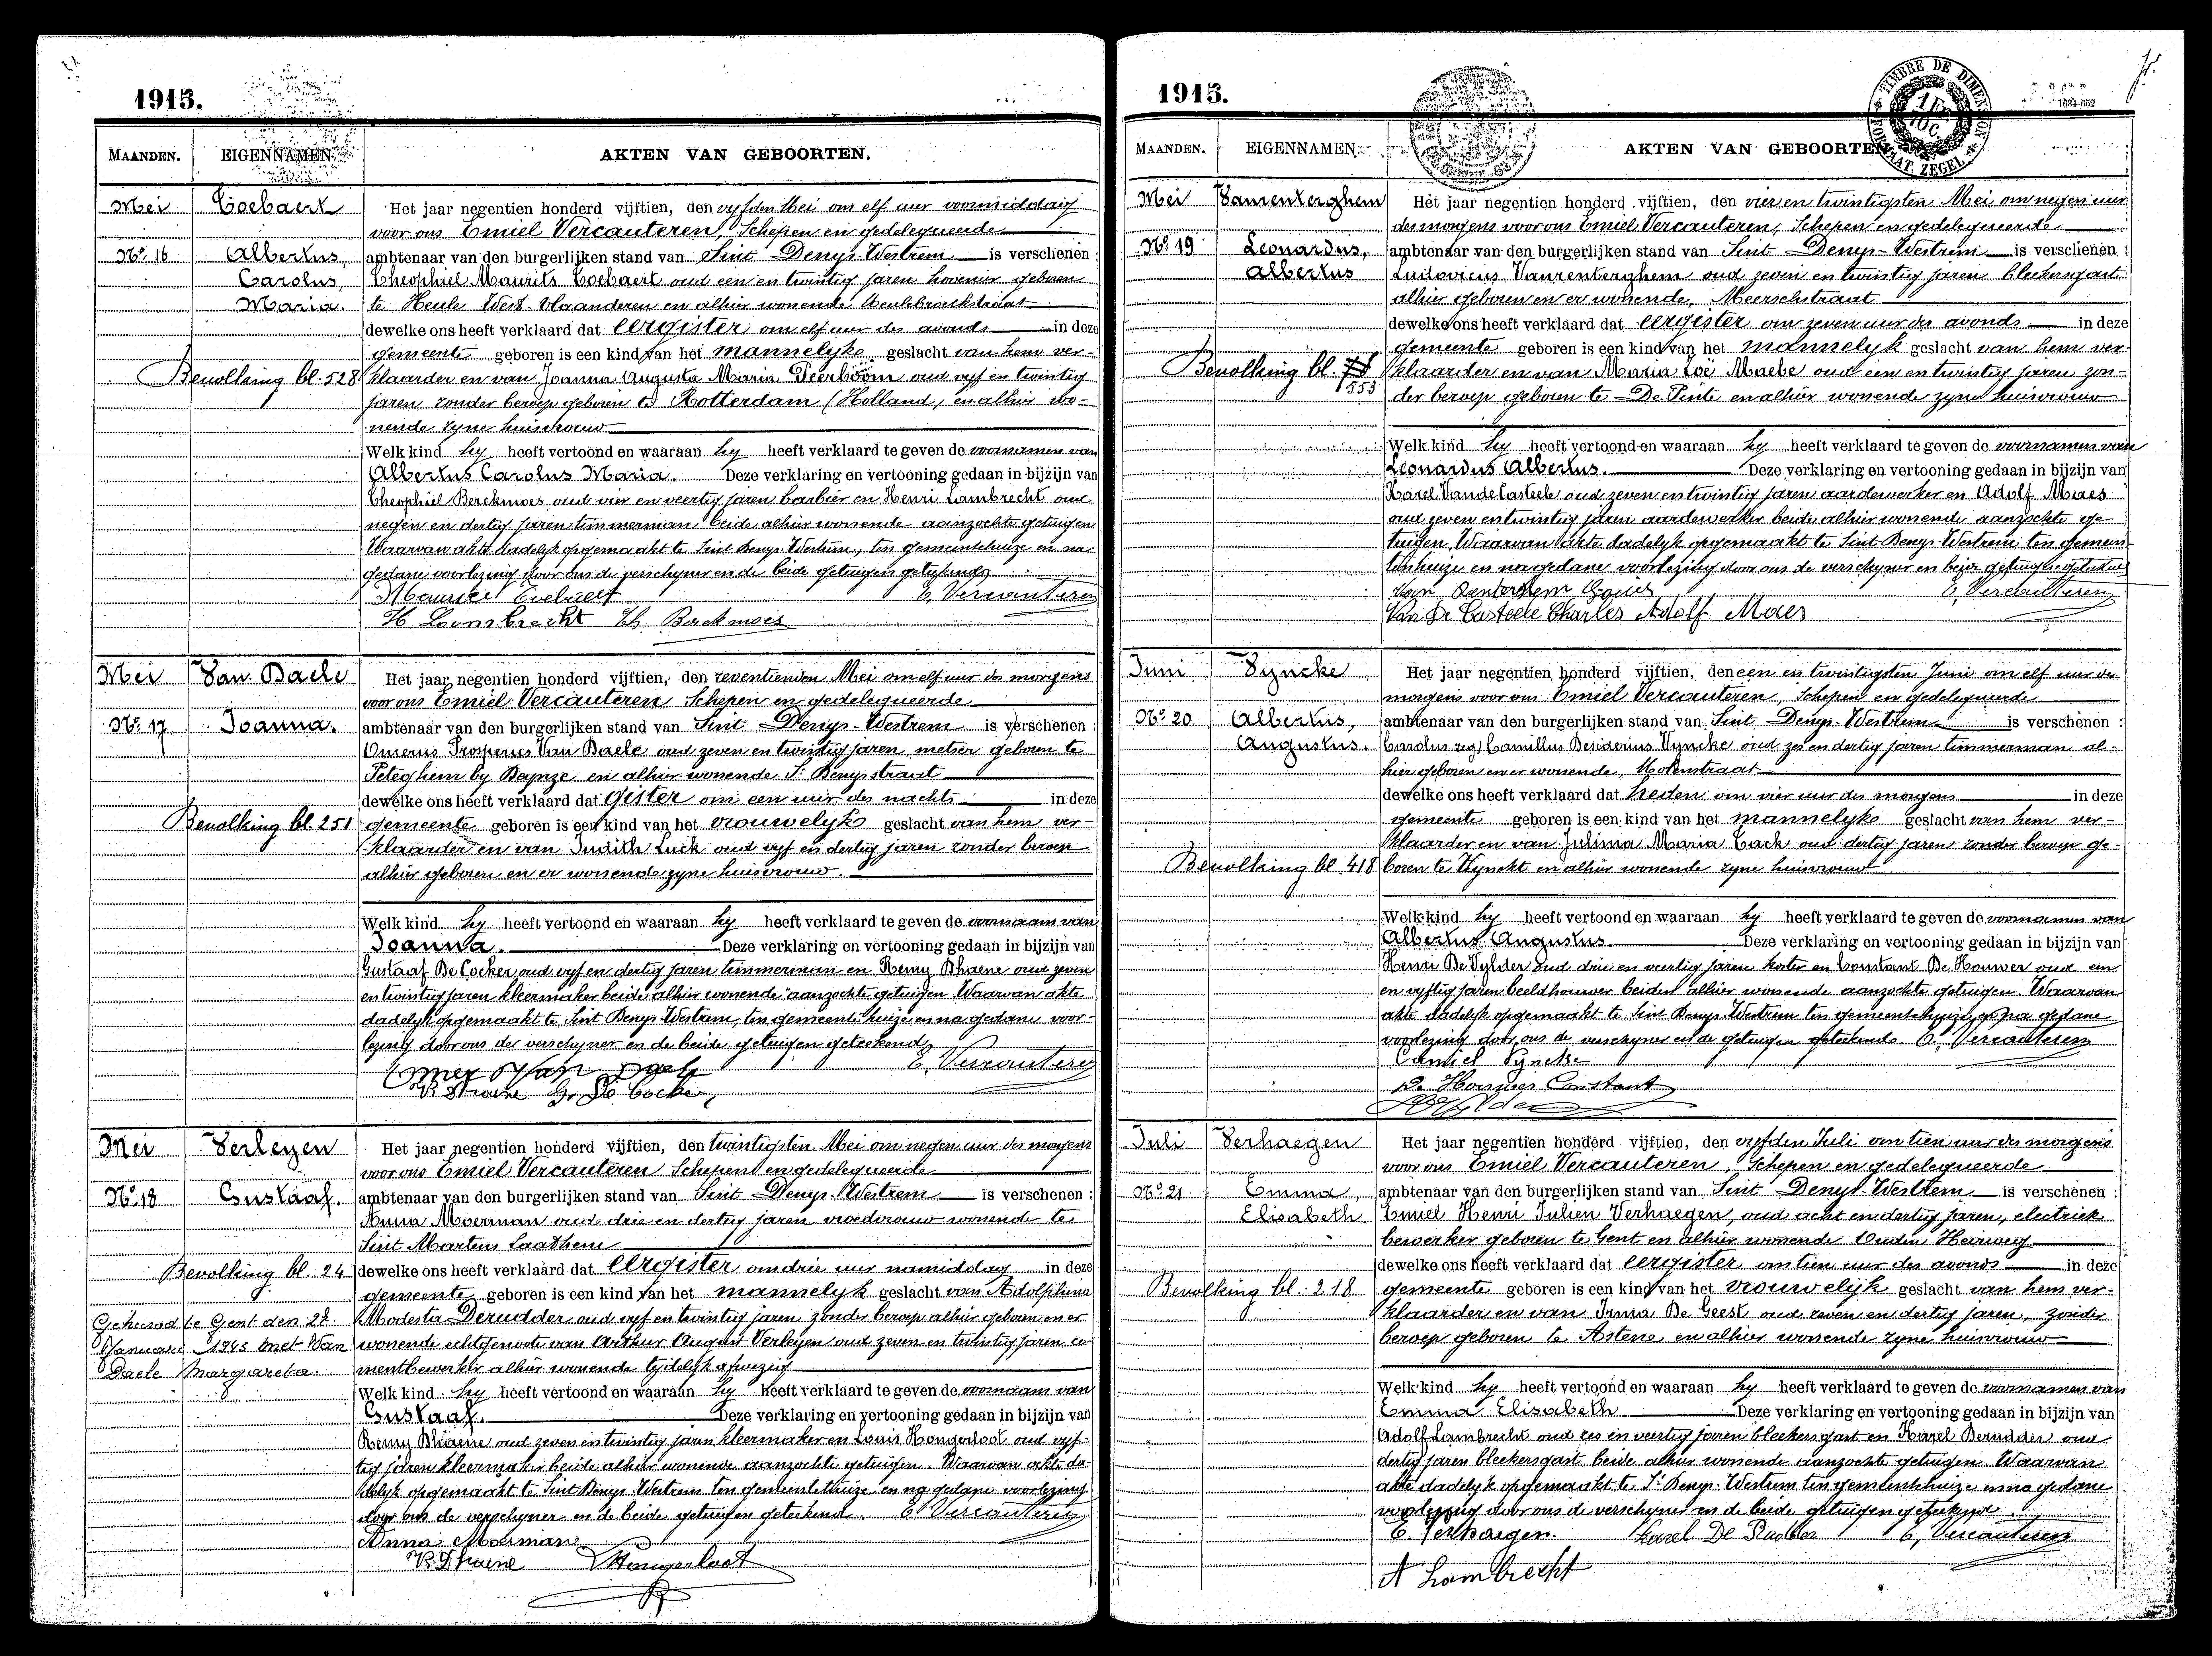 1915.
MAANDEN.
EIGENNAMEN.
AKTEN VAN GEBOORTEN.
Mei
Coebaert
No. 16
Albertus,
Carolus,
Maria.
Bevolking bl. 528
Het jaar negentien honderd vijftien, den vyfden Mei om elf uur voormiddag
voor ons Emiel Vercauteren, Schepen en gedelegueerde
ambtenaar van den burgerlijken stand van Sint Denys-Westrem is verschenen :
Theophiel Maurits Coebaert oud een en twintig jaren hovenier geboren
te Heule West-Vlaanderen en alhier wonende Beulebroekstraat
dewelke ons heeft verklaard dat eergister om elf uur des avonds in deze
gemeente geboren is een kind van het mannelyke geslacht van hem ver-
klaarder en van Joanna Augusta Maria Peerboom oud vyf en twintig
jaren zonder beroep geboren te Rotterdam (Holland) en alhier wo-
nende zyne huisvrouw
Welk kind hy heeft vertoond en waaraan hy heeft verklaard te geven de voornamen van
Albertus Carolus Maria. Deze verklaring en vertooning gedaan in bijzijn van
Theophiel Berckmoes oud vier en veertig jaren barbier en Henri Lambrecht oud
negen en dertig jaren timmerman beide alhier wonende aanzochte getuigen
Waarvan akte dadelyk opgemaakt te Sint Denys-Westrem, ten gemeentehuize en na
gedane voorlezing door ons de verschyner en de beide getuigen geteekend
Maurice Coebaert E. Vercauteren
H Lambrecht Th Berckmoes
Mei
Van Daele
No. 17.
Joanna.
Bevolking bl. 251
Het jaar negentien honderd vijftien, den zeventienden Mei om elf uur des morgens
voor ons Emiel Vercauteren Schepen en gedelegueerde
ambtenaar van den burgerlijken stand van Sint Denys-Westrem is verschenen :
Omerus Prosperus Van Daele oud zeven en twintig jaren metser geboren te
Peteghem by Deynze en alhier wonende St. Denysstraat
dewelke ons heeft verklaard dat gister om een uur des nachts in deze
gemeente geboren is een kind van het vrouwelyke geslacht van hem ver-
klaarder en van Judith Luck oud vyf en dertig jaren zonder beroep
alhier geboren en er wonende zyne huisvrouw.
Welk kind hy heeft vertoond en waaraan hy heeft verklaard te geven de voornaam van
Joanna. Deze verklaring en vertooning gedaan in bijzijn van
Gustaaf De Cocker oud vyf en dertig jaren timmerman en Remy Dhaene oud zeven
en twintig jaren kleermaker beide alhier wonende aanzochte getuigen Waarvan akte
dadelyk opgemaakt te Sint Denys-Westrem, ten gemeentehuize en na gedane voor-
lezing door ons de verschyner en de beide getuigen geteekend
Omer Van Daele E. Vercauteren
R. Dhaene G. De Cocker
Mei
Verleyen
No. 18
Gustaaf.
Bevolking bl. 24
Gehuwd te Gent den 28
Januari 1943 met Van
Daele Margareta.
Het jaar negentien honderd vijftien, den twintigsten Mei om negen uur des morgens
voor ons Emiel Vercauteren Schepen en gedelegueerde
ambtenaar van den burgerlijken stand van Sint Denys-Westrem is verschenen :
Anna Moerman oud drie en dertig jaren vroedvrouw wonende te
Sint Martens Laathem
dewelke ons heeft verklaard dat eergister om drie uur namiddag in deze
gemeente geboren is een kind van het mannelyk geslacht van Adolphina
Modesta Derudder oud vyf en twintig jaren zonder beroep alhier geboren en er
wonende echtgenoote van Arthur August Verleyen oud zeven en twintig jaren ce-
mentbewerker alhier wonende tydelyk afwezig
Welk kind hy heeft vertoond en waaraan hy heeft verklaard te geven de voornaam van
Gustaaf. Deze verklaring en vertooning gedaan in bijzijn van
Remy Dhaene oud zeven en twintig jaren kleermaker en Louis Hongerloot oud vyf-
tig jaren kleermaker beide alhier wonende aanzochte getuigen. Waarvan akte da-
delyk opgemaakt te Sint Denys-Westrem ten gemeentehuize en na gedane voorlezing
door ons de verschyner en de beide getuigen geteekend. E Vercauteren
Anna Moerman
R. Dhaene Hongerloot
1915.
TIMBRE DE DIMENSION
FORMAAT. ZEGEL
1634-652
MAANDEN.
EIGENNAMEN.
AKTEN VAN GEBOORTEN.
Mei
Vanrenterghem
No. 19
Leonardus,
Albertus
Bevolking bl.
553
Het jaar negentien honderd vijftien, den vier en twintigsten Mei om negen uur
des morgens voor ons Emiel Vercauteren, Schepen en gedelegueerde
ambtenaar van den burgerlijken stand van Sint Denys-Westrem is verschenen :
Ludovicus Vanrenterghem oud zeven en twintig jaren bleekersgast
alhier geboren en er wonende, Meerschstraat
dewelke ons heeft verklaard dat eergister om zeven uur des avonds in deze
gemeente geboren is een kind van het mannelyk geslacht van hem ver-
klaarder en van Maria Zoë Maebe oud een en twintig jaren zon-
der beroep geboren te De Pinte en alhier wonende zyne huisvrouw
Welk kind hy heeft vertoond en waaraan hy heeft verklaard te geven de voornamen van
Leonardus Albertus. Deze verklaring en vertooning gedaan in bijzijn van
Karel Vande Casteele oud zeven en twintig jaren aardewerker en Adolf Maes
oud zeven en twintig jaren aardewerker beide alhier wonende aanzochte ge-
tuigen. Waarvan akte dadelyk opgemaakt te Sint Denys-Westrem ten gemeen-
tenhuize en na gedane voorlezing door ons de verschyner en beide getuigen geteekend
Van Renterghem Louis E. Vercauteren
Van De Casteele Charles Adolf Maes
Juni
Vyncke
No. 20
Albertus,
Augustus.
Bevolking bl. 418
Het jaar negentien honderd vijftien, den een en twintigsten Juni om elf uur des
morgens voor ons Emiel Vercauteren, Schepen en gedelegueerde
ambtenaar van den burgerlijken stand van Sint Denys-Westrem is verschenen :
Carolus zegd Camillus Desiderius Vyncke oud zes en dertig jaren timmerman al-
hier geboren en er wonende, Molenstraat
dewelke ons heeft verklaard dat heden om vier uur des morgens in deze
gemeente geboren is een kind van het mannelyke geslacht van hem ver-
klaarder en van Julima Maria Cack oud dertig jaren zonder beroep ge-
boren te Wynckt en alhier wonende zyne huisvrouw
Welk kind hy heeft vertoond en waaraan hy heeft verklaard te geven de voornamen van
Albertus Augustus. Deze verklaring en vertooning gedaan in bijzijn van
Henri De Vylder oud drie en veertig jaren koster en Constant De Houwer oud een
en vyftig jaren beeldhouwer beiden alhier wonende aanzochte getuigen. Waarvan
akte dadelyk opgemaakt te Sint Denys-Westrem ten gemeentehuize, en na gedane
voorlezing door ons de verschyner en de getuigen geteekend. E. Vercauteren
Camiel Vyncke
De Houwer Constant
De Vylder
Juli
Verhaegen
No. 21
Emma,
Elisabeth
Bevolking bl. 218
Het jaar negentien honderd vijftien, den vyfden Juli om tien uur des morgens
voor ons Emiel Vercauteren, Schepen en gedelegueerde
ambtenaar van den burgerlijken stand van Sint Denys-Westrem is verschenen :
Emiel Henri Julien Verhaegen, oud acht en dertig jaren, electriek
bewerker geboren te Gent en alhier wonende Ouden Heirweg
dewelke ons heeft verklaard dat eergister om tien uur des avonds in deze
gemeente geboren is een kind van het vrouwelijk geslacht van hem ver-
klaarder en van Irma De Geest oud zeven en dertig jaren, zonder
beroep geboren te Astene en alhier wonende zyne huisvrouw
Welk kind hy heeft vertoond en waaraan hy heeft verklaard te geven de voornamen van
Emma Elisabeth Deze verklaring en vertooning gedaan in bijzijn van
Adolf Lambrecht oud zes en veertig jaren bleekersgast en Karel Derudder oud
dertig jaren bleekersgast beide alhier wonende aanzochte getuigen. Waarvan
akte dadelyk opgemaakt te St. Denys-Westrem ten gemeentehuize en na gedane
voorlezing door ons de verschyner en de beide getuigen geteekend.
E. Verhaegen. Karel De Rudder E. Vercauteren
A Lambrecht